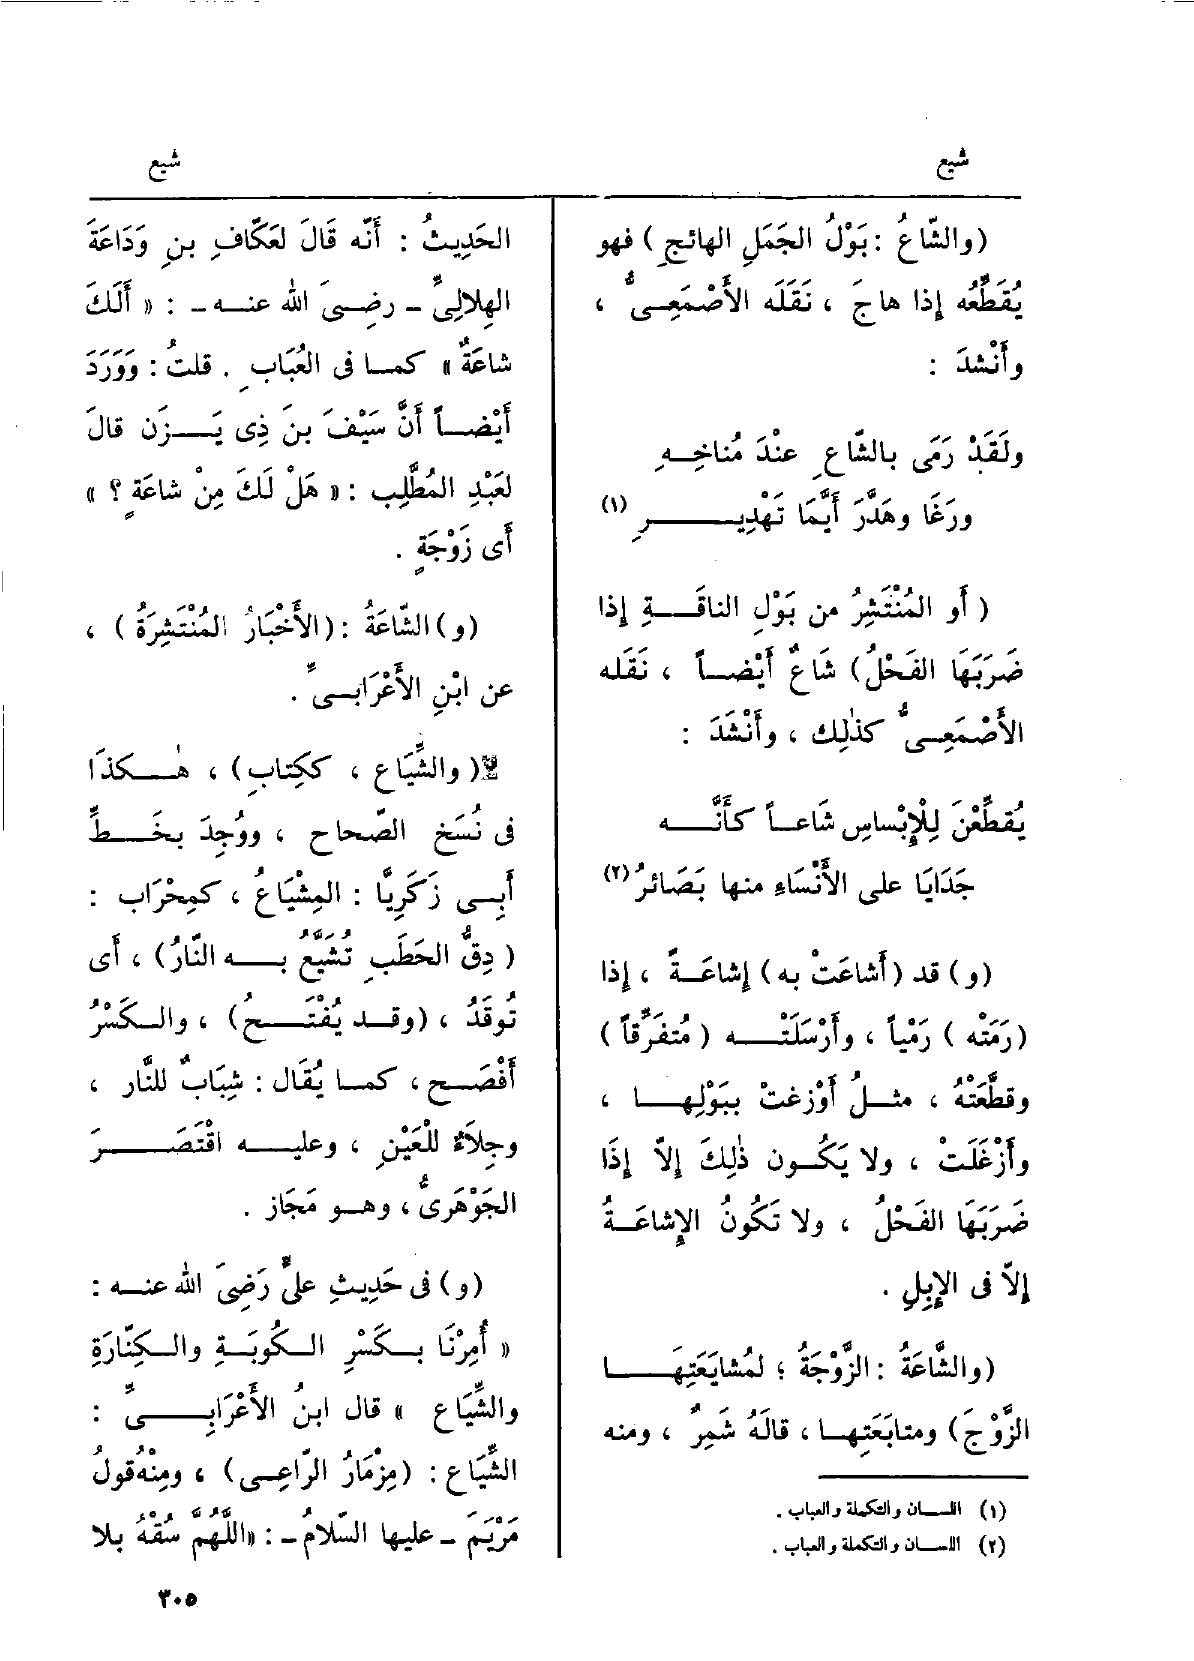 شيع
شيع
(والشَّاعُ : بَوْلُ الجَمَلِ الهائجِ) فهو
يُقَطِّعُه إذا هاجَ ، نَقَلَه الأَصْمَعِىُّ ،
وأَنْشدَ :
ولَقَدْ رَمَى بالشَّاعِ عنْدَ مُناخِهِ
ورَغَا وهَدَّرَ أَيَّمَا تَهْدِيرِ (١)
( أو المُنْتَشِرُ من بَوْلِ الناقَةِ إذا
ضَرَبَهَا الفَحْلُ) شَاعٌ أَيْضاً ، نَقَله
الأَصْمَعِىُّ كذٰلِك ، وأَنْشَدَ :
يُقطِّعْنَ لِلْإِبْساسِ شَاعاً كأَنَّه
جَدَايَا على الأَنْسَاءِ منها بَصَائرُ (٢)
(و) قد (أَشاعَتْ به) إشاعَةً ، إذا
(رَمَتْه ) رَمْياً ، وأَرْسَلَتْه (مُتفَرِّقاً)
وقطَّعَتْهُ ، مثلُ أَوْزغتْ ببَوْلِها ،
وأَزْغَلَتْ ، ولا يَكُون ذٰلِكَ إلاّ إذَا
ضَرَبَهَا الفَحْلُ ، ولا تَكُونُ الإشاعَةُ
إلاّ فى الإبِلِ .
(والشَّاعَةُ : الزَّوْجَةُ ؛ لمُشايَعَتِهَا
الزَّوْجَ) ومتابَعَتِها ، قالَهُ شَمِرٌ ، ومنه
(١) اللسان والتكملة والعباب .
(٢) اللسان والتكملة والعباب .
الحَدِيثُ : أَنَّه قَالَ لعَكَّافِ بنِ وَدَاعَةَ
الهِلالِىِّ - رضِىَ الله عنه - : « أَلَكَ
شاعَةٌ » كما فى العُبَابِ . قلتُ : ووَرَدَ
أَيْضاً أَنَّ سَيْفَ بنَ ذِى يَزَن قالَ
لعَبْدِ المُطَّلِب : « هَلْ لَكَ مِنْ شاعَةٍ ؟ »
أَى زَوْجَةٍ .
(و) الشَّاعَةُ : (الأَخْبَارُ المُنْتَشِرَةُ ) ،
عن ابْنِ الأَعْرَابِىِّ .
( والشِّيَاع ، ككِتابٍ) ، هٰكذَا
فى نُسَخ الصّحاح ، ووُجِدَ بخَطِّ
أَبِى زَكَرِيَّا : المِشْيَاعُ ، كمِحْرَاب :
( دِقُّ الحَطَبِ تُشَيَّعُ به النَّارُ) ، أَى
تُوقَدُ ، (وقد يُفْتَحُ) ، والكَسْرُ
أَفْصَح ، كما يُقَال : شِبَابٌ للنَّار ،
وجِلاَءٌ للْعَيْنِ ، وعليه اقْتَصَرَ
الجَوْهَرِىُّ ، وهو مَجَاز .
(و) فى حَدِيثِ علىٍّ رَضِىَ الله عنه :
« أُمِرْنَا بكَسْرِ الكُوبَةِ والكِنَّارَةِ
والشِّيَاعِ » قال ابنُ الأَعْرَابِىِّ :
الشِّيَاع : (مِزْمَارُ الرّاعِى) ، ومِنْه قولُ
مَرْيَمَ - عليها السَّلامُ - : «اللَّهُمَّ سُقْهُ بلا
٣٠٥